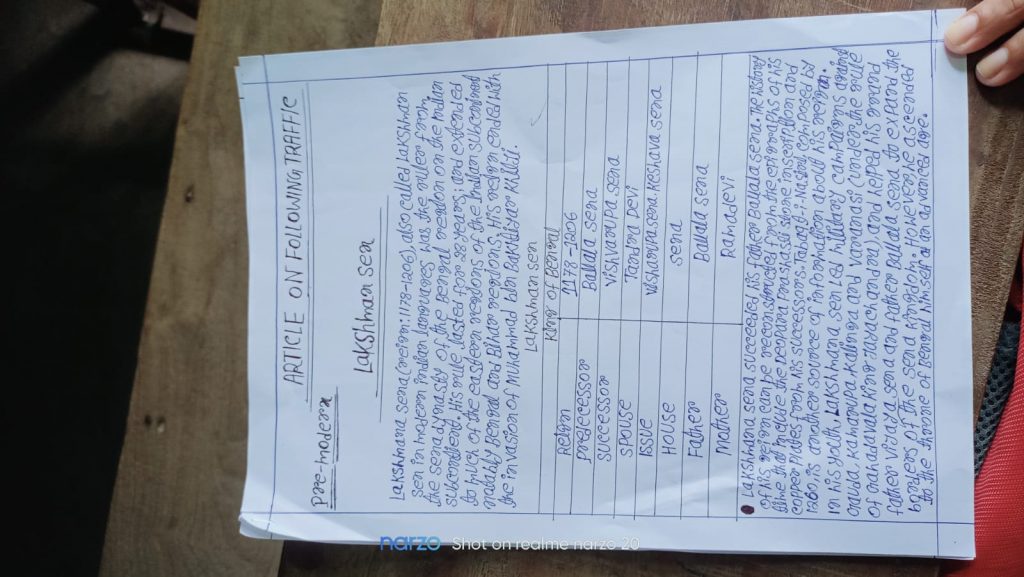 ARTICLE ON FOLLOWING TRAFFIC
pre-modern
Lakshman sen
Lakshmana sena(reign:1178-1206) also called Lakshman
sen in modern indian languages was the ruler form
the sena dynasty of the Bengal on the indian
subcontinend, his rule lasted for 28 years; and extended
to much of the eastern regions of the Indian subcontinend
Bengal and Bihar regions, His reign ended with
the invasion of Muhammad bin Bakhtiyar Killiti.
Lakshmann sen
King of Bengal
Reign 1178-1206
predecessor Ballal sena
successor vishvarupa sena
spouse Tandra Devi
Issue visharupa sena Keshava sena
HOUSE sena
Father Ballala sena
Mother Ramadevi
Lakshmana sena succeeded his father Ballala sena. The History
of his reign can be reconstructed from the of his
time that include the Deopara prasasti stone inscription and
copper plates from his successors. Tabaqt-i-Nasiri, composed by
1260, is another source of information about his reign.
In his youth, Lakshmana sen led military campaigns against
Gauda, Kamrupa Kalinga and varanasi (under the rule
of Gahadavala King Jayachandra), and helped his grand
father vijaya sena and father Ballala sena to expand the
borders of the sena kingdom. However he ascended
to the throne of Bengal himself at an advanced age.
narzo Shot on realme narzo 20